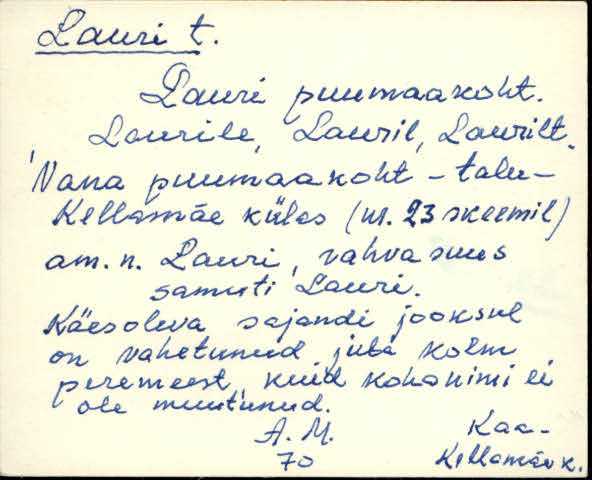 Lauri t.
Lauri puumaakoht.
Laurile, Lauril, Laurilt.
'Vana puumaakoht - talu -
Kellamäe külas (nr. 23 skeemil)
am. n. Lauri, rahva suus
samuti Lauri.
Käesoleva sajandi jooksul
on vahetunud juba kolm
peremeest, kuid kohanimi ei
ole muutunud.
A. M.
70
Kaa-
Kellamäe k.